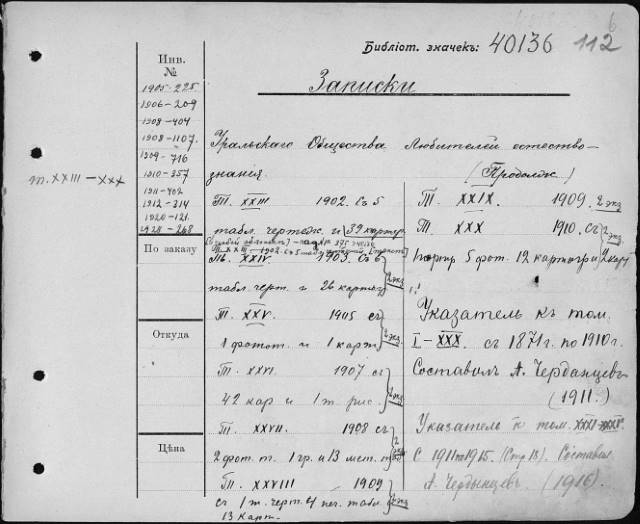 Библіот. значекъ: 40136 112
6
Инв.
№
Записки
1905-225
1906-209
1908-404
1908-1107
1909-716
1910-357
1911-402
1912-314
1920-121
1928-268
т. XXIII-XXX
По заказу
Откуда
Цѣна
Уральскаго Общества Любителей естество-
знанія. (Продолж.)
Т. XXIII 1902. съ 5
табл. чертеж. и 39 картогр.
Тв. XXIV 1903. съ 6
табл. черт. и 26 картогр. 2 экз
Т. XXV. 1905 съ
1 фотот. и 1 карт. 2 экз
Т. XXVI 1907 съ
42 кар и 1 т. рис. 2 экз
Т. XXVII. 1908 съ
2 фот. т. 1 гр. и 13 мет. т.
Т. XXVIII 1909
съ 1 т. черт. 4 печ. табл. 2 экз
13 карт.
Т. XXIX. 1909. 2 экз
Т. XXX 1910. съ 2 экз.
1 портр 5 фот. 12 картогр и 2 карт
Указатель къ том.
I-XXX. съ 1871 г. по 1910 г.
Составилъ А. Черданцевъ
(1911.)
Указатель к том. XXXI-XXXV.
С 1911 по 1915. (Стр 13). Составил
А. Чердынцев. (1916)